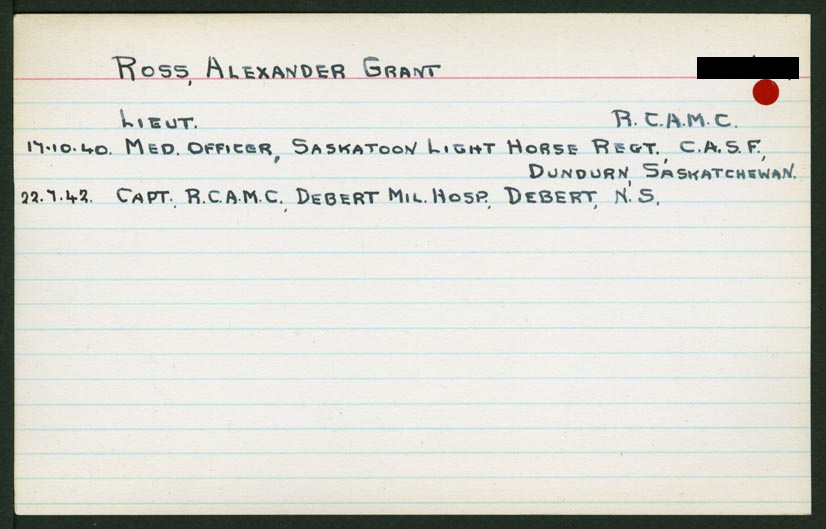 ROSS, ALEXANDER GRANT
LIEUT. R.C.A.M.C.
17.10.40. MED. OFFICER, SASKATOON LIGHT HORSE REGT., C.A.S.F.,
DUNDURN, SASKATCHEWAN.
22.7.42. CAPT. R.C.A.M.C., DEBERT MIL. HOSP., DEBERT, N.S.